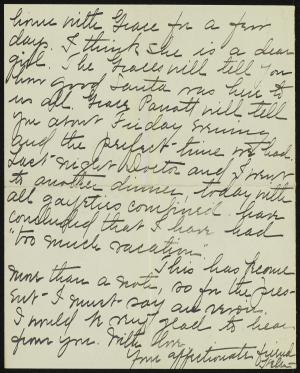 home with Grace for a few
days. I think she is a dear
girl. The Graces will tell you
how good Santa was here to
us all. Grace Parrott will tell
you about Friday evening
and the perfect time we had.
Last night Doctor and I went
to another dinner, today with
all gayeties combined have
concluded that I have had
"too much vacation".
This has become
more than a note, so for the pres-
ent - I must say au revoir.
I would be very glad to hear
from you. With love
Your affectionate friend